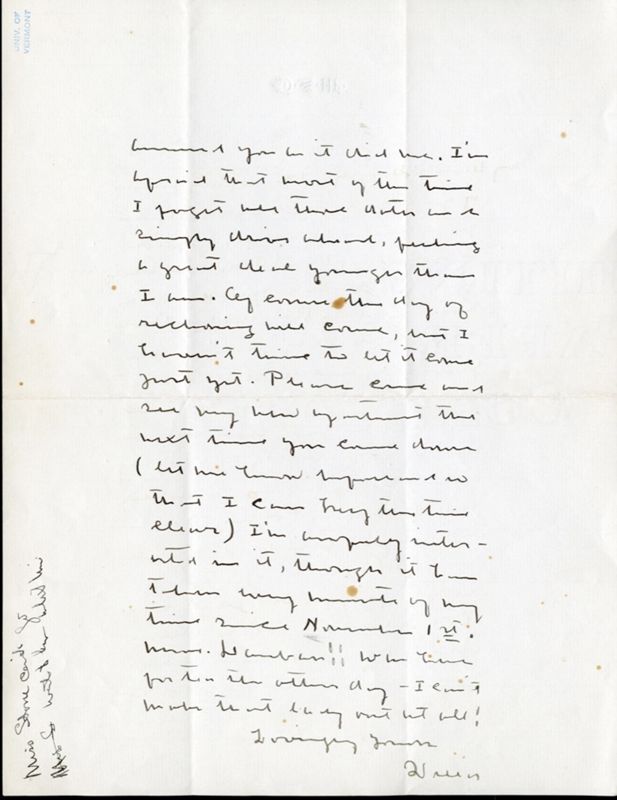 UNIV. OF
VERMONT
amused you as it did me. I'm
afraid that most of the time
I forget all those dates and
simply drive ahead, feeling
a great deal younger than
I am. Of course the day of
reckoning will come, but I
haven't time to let it come
just yet. Please come and
see my new apartment the
next time you come down
(let me know beforehand so
that I can keep the time
clear) I'm awfully inter-
ested in it, though it has
taken every minute of my
time since November 1st.
Mme. !! Was here
for tea the other day - I can't
make that lady out at all!
Lovingly yours
Willa
Miss